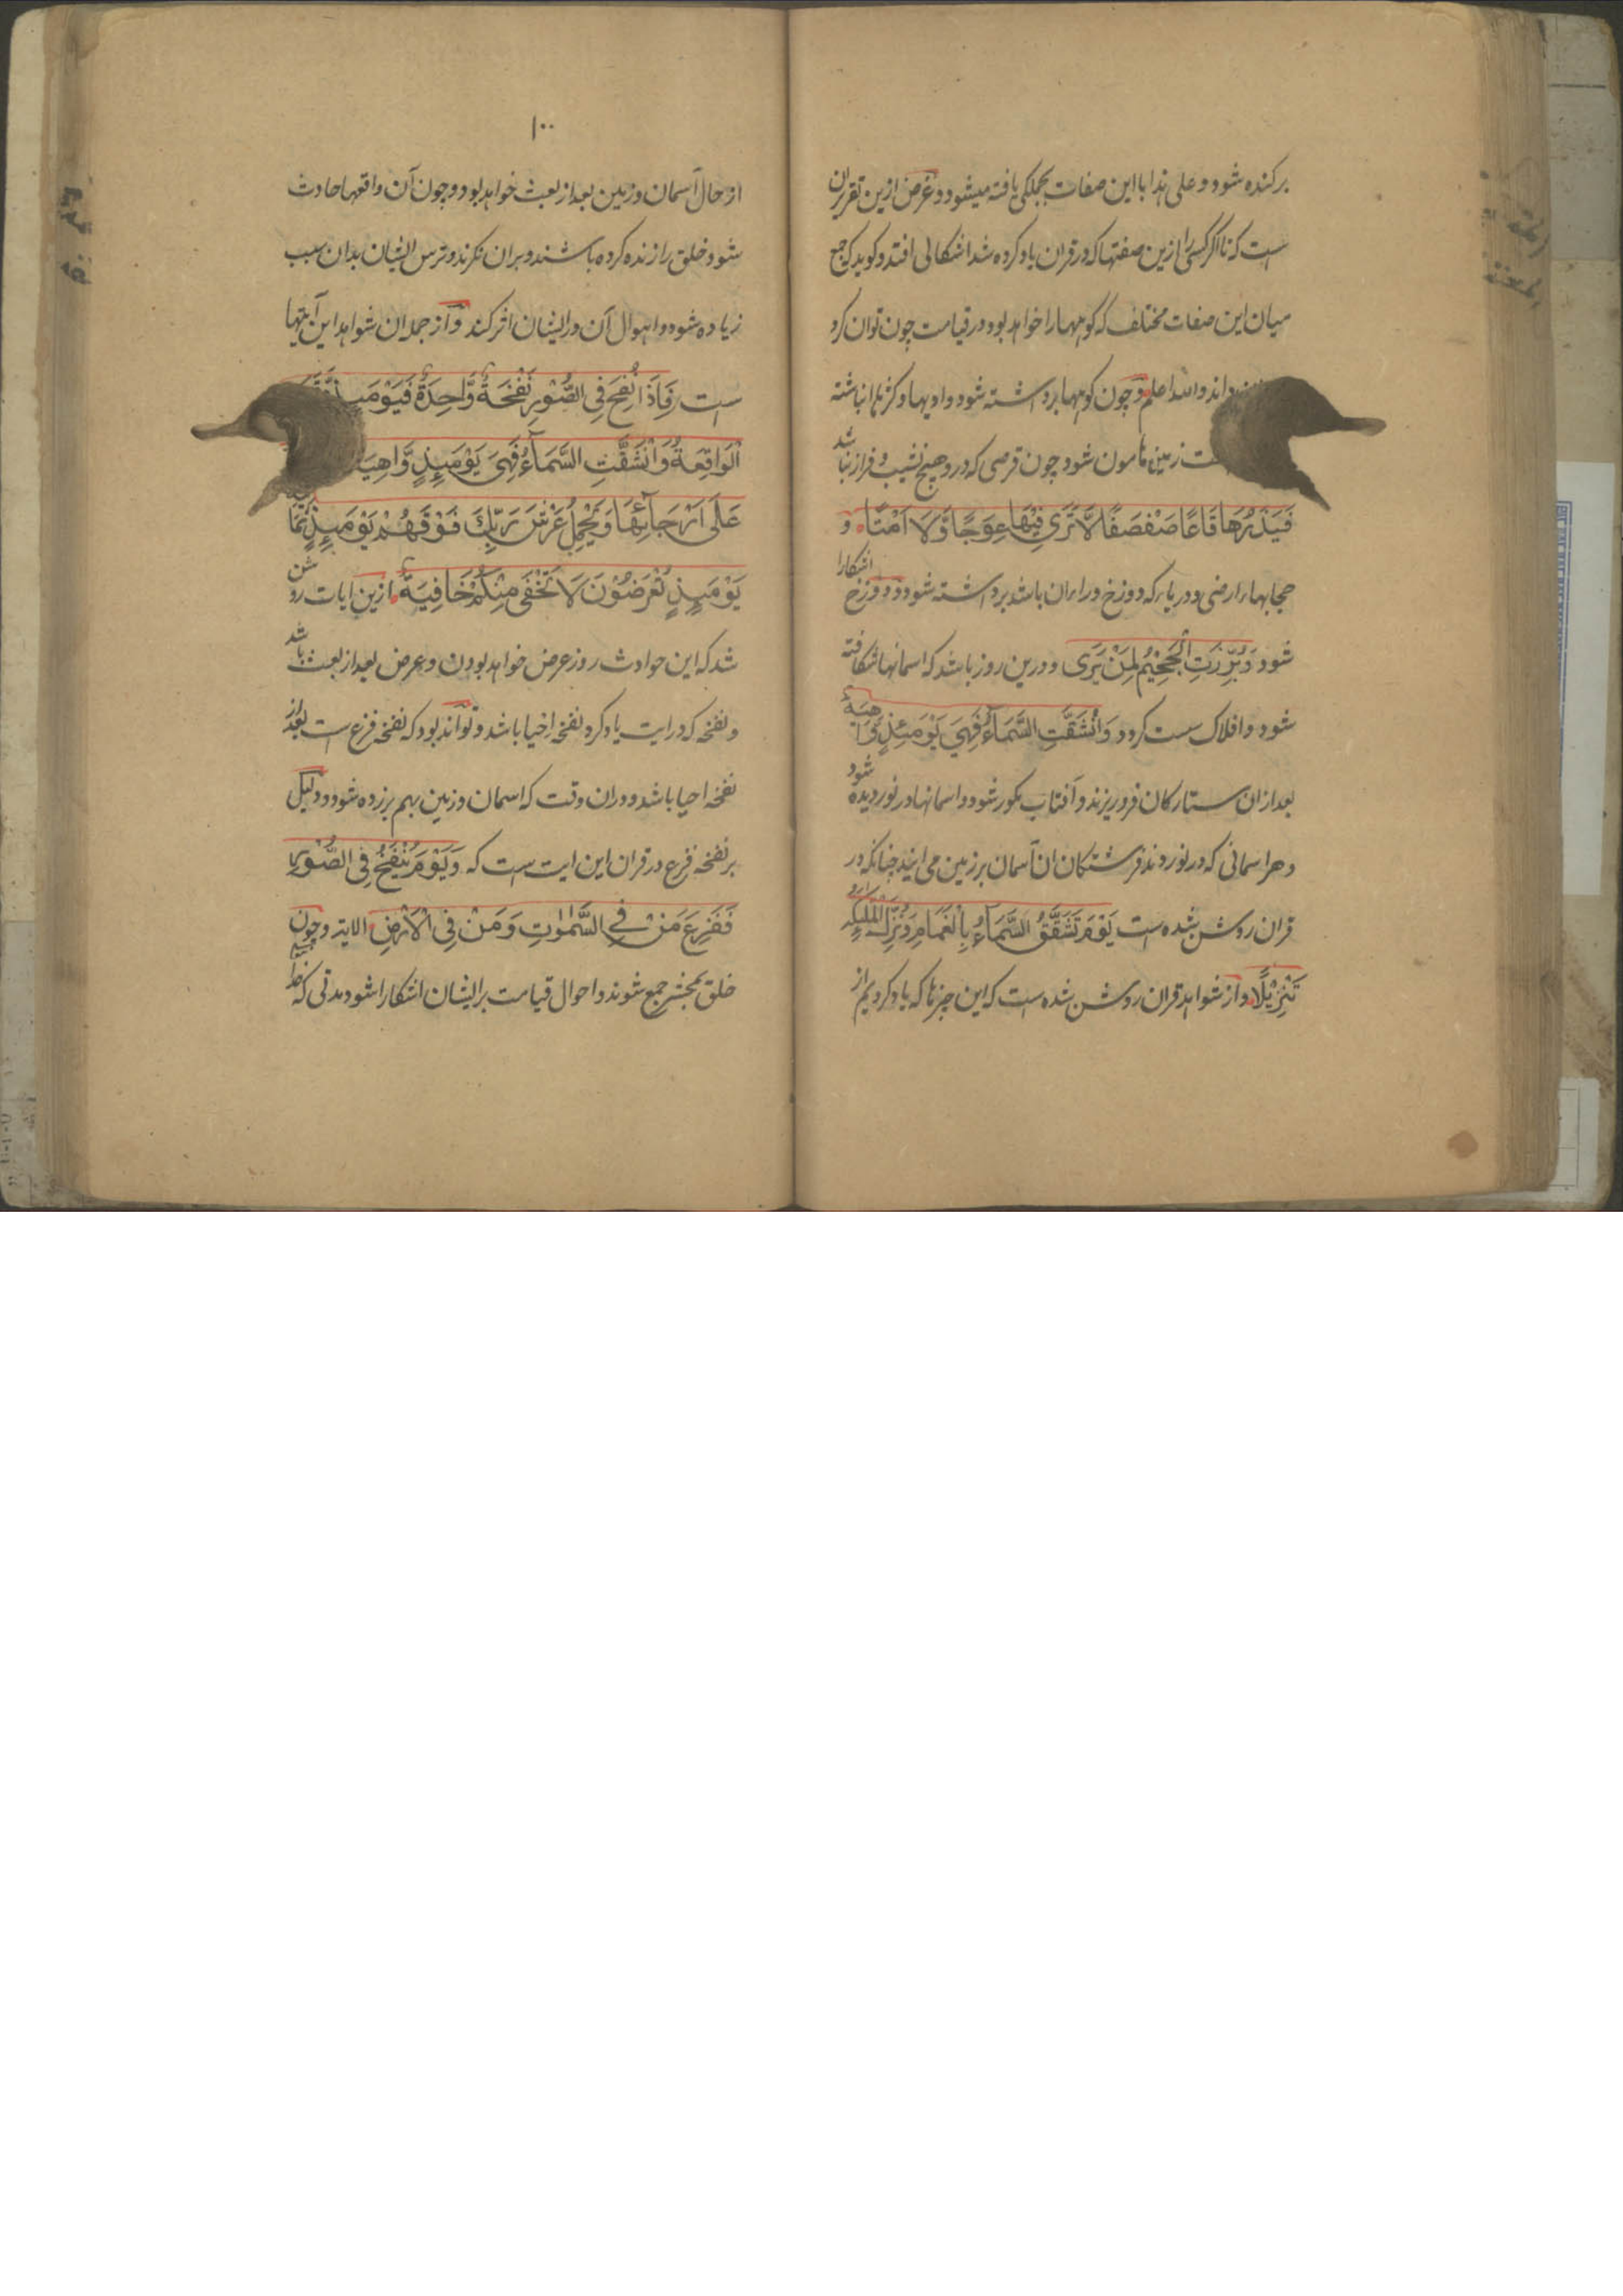 برکنده شود و علی هذا با این صفات بجملکی یافته میشود و غرض ازین تقریر ان
است که تا اکر کسی را ازین صفتها که در قران یاد کرده شد اشکالی افتد و کوید که جمع
میان این صفات مختلف که کوهها را خواهد بود در قیامت چون توان کرد
داند والله اعلم و چون کوهها برداشته شود و وادیها و کژیها انباشته
زمین هامون شود چون قرصی که درو هیچ نشیب و فراز نباشد
فَيَذَرُهَا قَاعًا صَفْصَفًا لَّا تَرَىٰ فِيْهَا عِوَجًا وَّلَا اَمْتًا و
حجابهاء ارضی و دریاء که دوزخ وراء ان باشد برداشته شود و دوزخ اشکارا
شود وَبُرِّزَتِ الْجَحِيْمُ لِمَنْ يَرٰى و درین روز باشد که اسمانها شکافته
شود و افلاک سست کردد وَانْشَقَّتِ السَّمَآءُ فَهِيَ يَوْمَئِذٍ وَّاهِيَةٌ
بعد ازان ستارکان فرو ریزند و آفتاب مکور شود و اسمانها در نوردیده شود
و هر اسمانی که در نوردند فرشتکان ان آسمان بر زمین می ایند چنانکه در
قران روشن شده است يَوْمَ تَشَقَّقُ السَّمَآءُ بِالْغَمَامِ وَنُزِّلَ الْمَلٰٓئِكَةُ
تَنْزِيْلًا و از شواهد قران روشن شده است که این چیزها که یاد کردیم از
۱۰۰
از حال آسمان و زمین بعد از بعث خواهد بود و چون آن واقعها حادث
شود خلق را زنده کرده باشند و بران نکرند و ترس ایشان بدان سبب
زیاده شود و اهوال آن در ایشان اثر کند و از جمله ان شواهد این آیتها
است فَاِذَا نُفِخَ فِى الصُّوْرِ نَفْخَةٌ وَّاحِدَةٌ فَيَوْمَئِذٍ وَّقَعَتِ
الْوَاقِعَةُ وَانْشَقَّتِ السَّمَآءُ فَهِىَ يَوْمَئِذٍ وَّاهِيَةٌ
عَلٰى اَرْجَآئِهَا وَيَحْمِلُ عَرْشَ رَبِّكَ فَوْقَهُمْ يَوْمَئِذٍ ثَمٰنِيَةٌ
يَوْمَئِذٍ تُعْرَضُوْنَ لَا تَخْفٰى مِنْكُمْ خَافِيَةٌ ازین ایات روشن
شد که این حوادث روز عرض خواهد بودن و عرض بعد از بعث باشد
و نفخه که در ایت یاد کرد نفخه احیا باشد و تواند بود که نفخه فزع است بعد از
نفخه احیا باشد و دران وقت که اسمان و زمین بهم بر زده شود و دلیل
بر نفخه فزع در قران این ایت است که وَيَوْمَ يُنْفَخُ فِى الصُّوْرِ
فَفَزِعَ مَنْ فِى السَّمٰوٰتِ وَمَنْ فِى الْاَرْضِ الایه و چون
خلق بمحشر جمع شوند و احوال قیامت بر ایشان اشکارا شود مدتی که